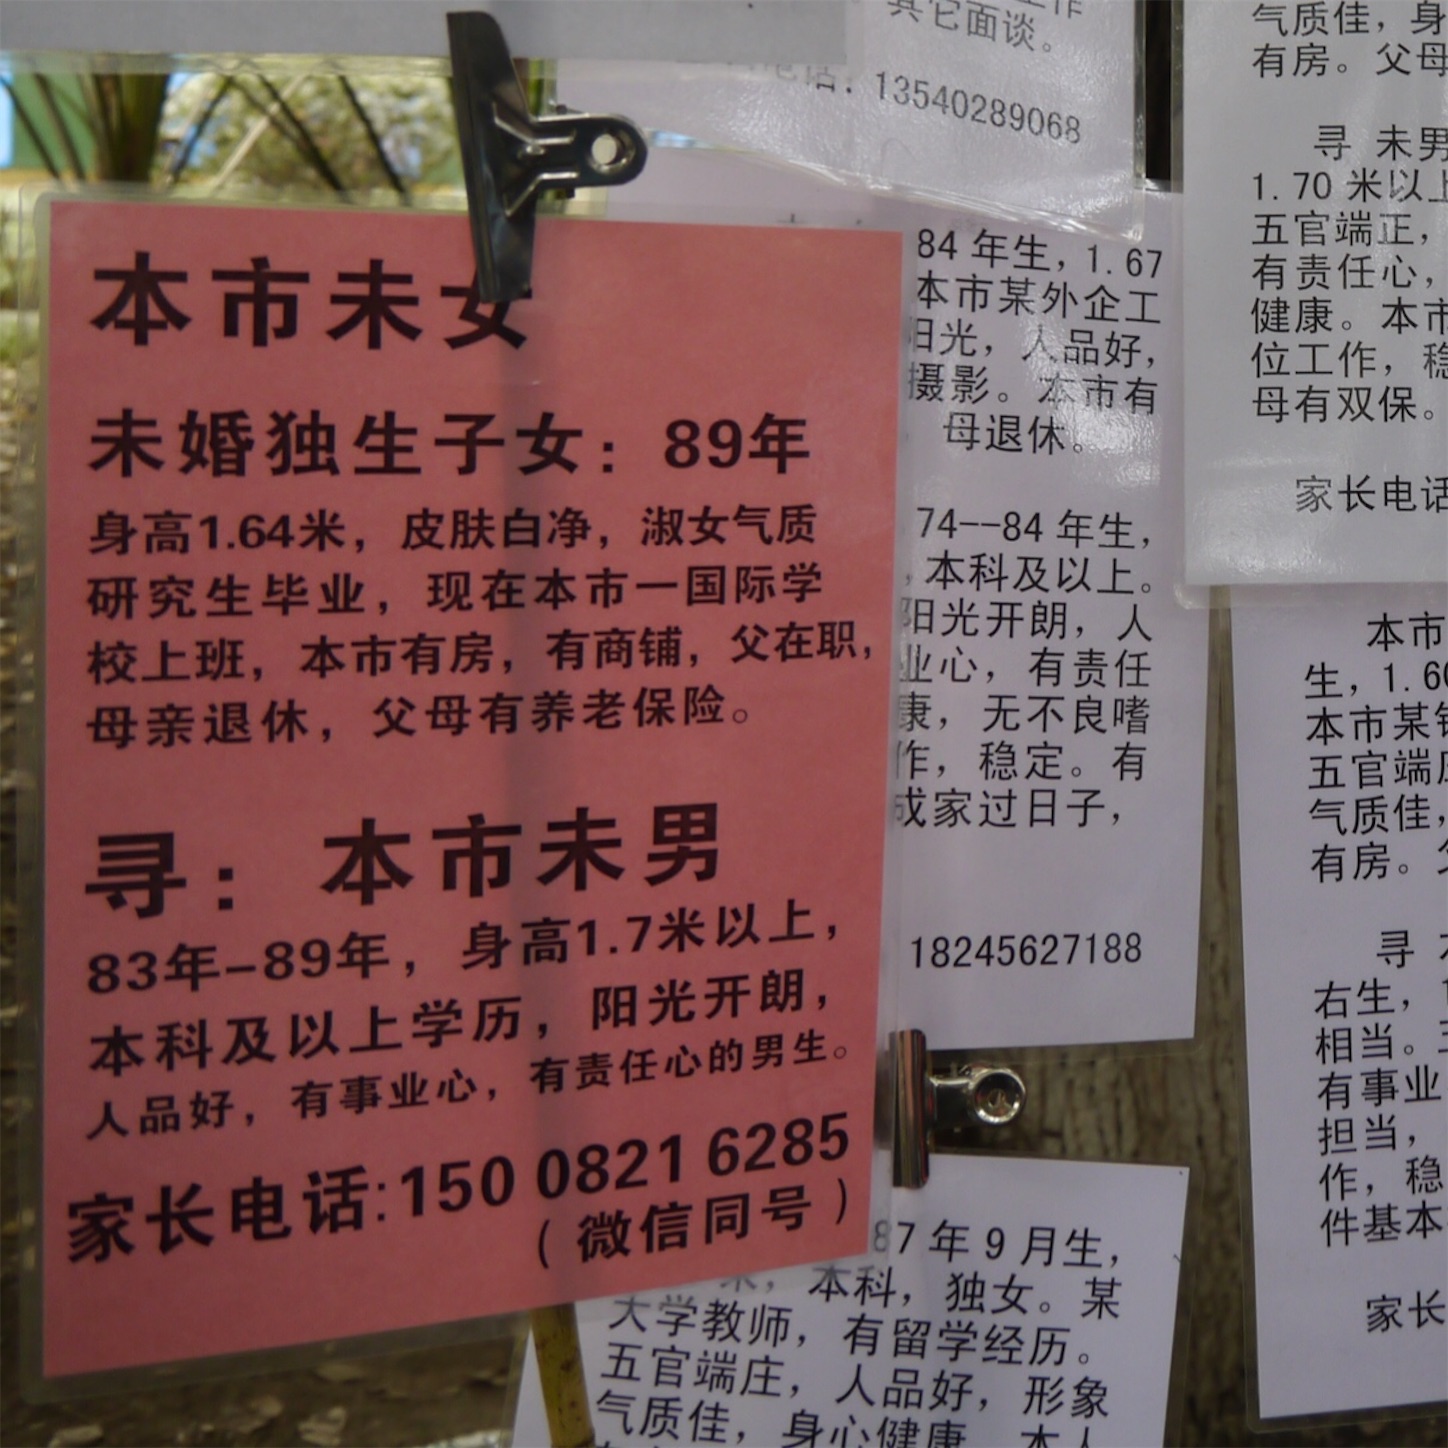 本市未女
未婚独生子女：89年
身高1.64米，皮肤白净，淑女气质
研究生毕业，现在本市一国际学
校上班，本市有房，有商铺，父在职，
母亲退休，父母有养老保险。
寻：本市未男
83年-89年，身高1.7米以上，
本科及以上学历，阳光开朗，
人品好，有事业心，有责任心的男生。
家长电话:150 0821 6285
(微信同号)
其它面谈。
电话：13540289068
84年生，1.67
本市某外企工
阳光，人品好，
摄影。本市有
母退休。
74--84年生，
，本科及以上。
阳光开朗，人
业心，有责任
康，无不良嗜
作，稳定。有
成家过日子，
18245627188
87年9月生，
米，本科，独女。某
大学教师，有留学经历。
五官端庄，人品好，形象
气质佳，身心健康，本人
气质佳，身
有房。父母
寻 未男
1.70米以上
五官端正，
有责任心，
健康。本市
位工作，稳
母有双保。
家长电话
本市
生，1.60
本市某
五官端庄
气质佳，
有房。父
寻
右生，
相当。
有事业
担当，
作，稳
件基本
家长